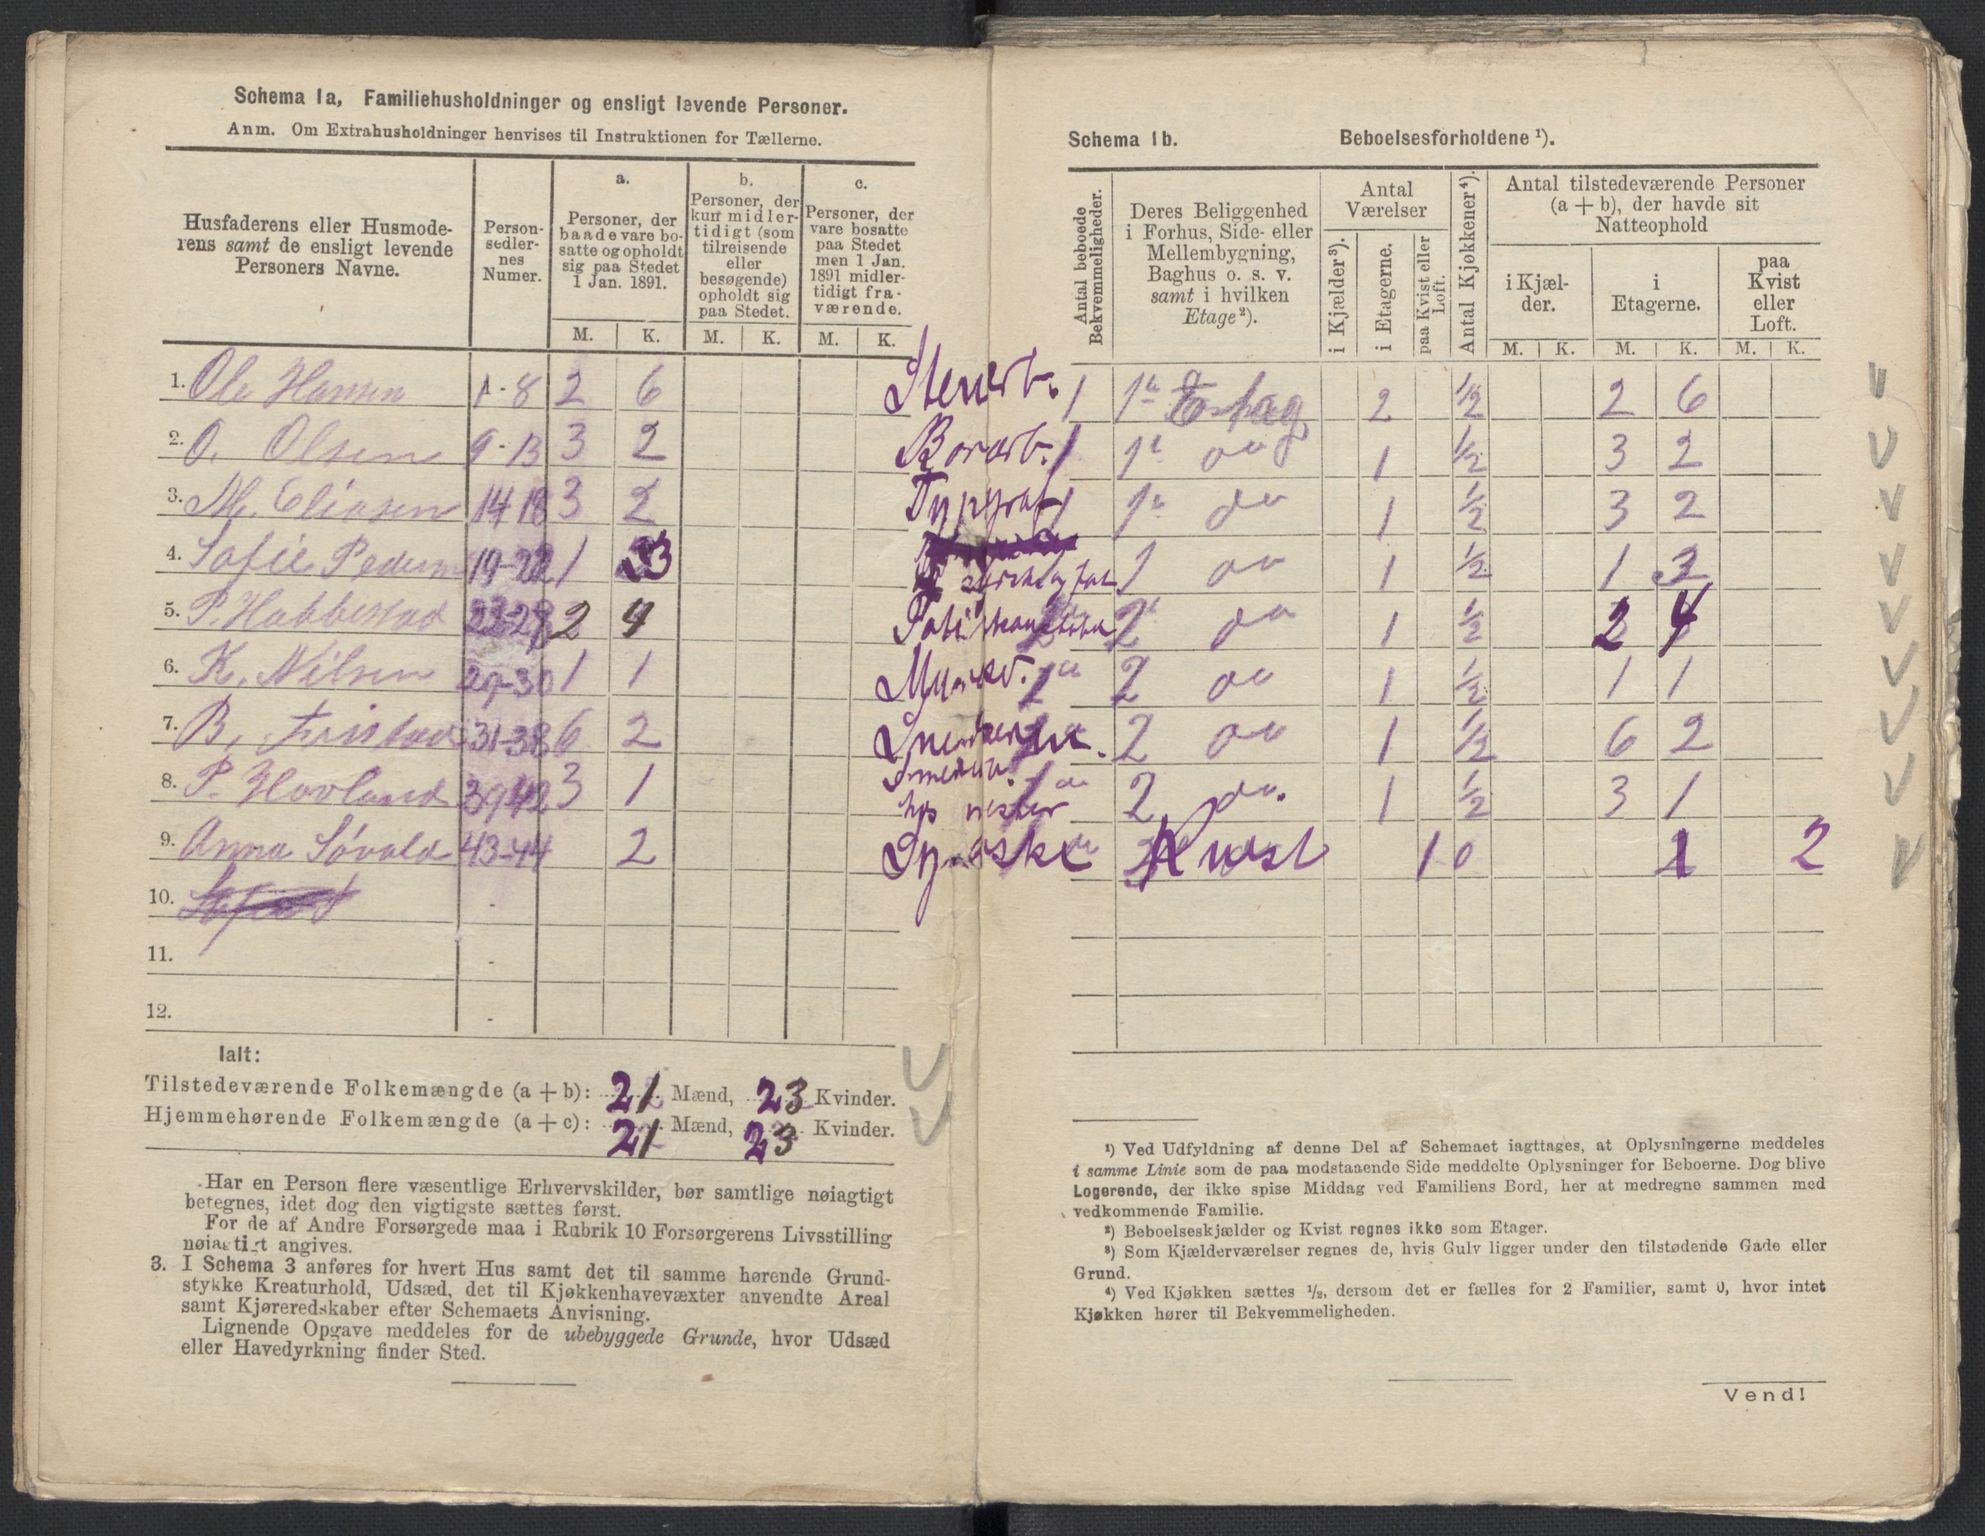 Schema 1a, Familiehusholdninger og ensligt levende Personer.
Anm. Om Extrahusholdninger henvises til Instruktionen for Tællerne.
Husfaderens eller Husmoderens samt de ensligt levende Personers Navne.
Personsedlernes Numer.
a. Personer, der baade vare bosatte og opholdt sig paa Stedet 1 Jan. 1891.
b. Personer, der kun midlertidigt (som tilreisende eller besøgende) opholdt sig paa Stedet.
c. Personer, der vare bosatte paa Stedet men 1 Jan. 1891 midlertidigt fraværende.
M. K. M. K. M. K.
1. Ole Hansen 1-8 2 6
2. O. Olsen 9-13 3 2
3. M. Eliasen 14-18 3 2
4. Sofie Pedersen 19-22 1 3
5. P. Habbestad 23-28 2 4
6. K. Nilsen 29-30 1 1
7. B. 31-38 6 2
8. P. Hovland 39-42 3 1
9. Anna Søvold 43-44 2
10.
11.
12.
Ialt:
Tilstedeværende Folkemængde (a + b): 21 Mænd, 23 Kvinder.
Hjemmehørende Folkemængde (a + c): 21 Mænd, 23 Kvinder.
Har en Person flere væsentlige Erhvervskilder, bør samtlige nøiagtigt
betegnes, idet dog den vigtigste sættes først.
For de af Andre Forsørgede maa i Rubrik 10 Forsørgerens Livsstilling
nøiagtigt angives.
3. I Schema 3 anføres for hvert Hus samt det til samme hørende Grund-
stykke Kreaturhold, Udsæd, det til Kjøkkenhavevæxter anvendte Areal
samt Kjøreredskaber efter Schemaets Anvisning.
Lignende Opgave meddeles for de ubebyggede Grunde, hvor Udsæd
eller Havedyrkning finder Sted.
Schema 1b. Beboelsesforholdene ¹).
Antal beboede Bekvemmeligheder.
Deres Beliggenhed i Forhus, Side- eller Mellembygning, Baghus o. s. v. samt i hvilken Etage²).
Antal Værelser
i Kjælder³).
i Etagerne.
paa Kvist eller Loft.
Antal Kjøkkener⁴).
Antal tilstedeværende Personer (a + b), der havde sit Natteophold
i Kjælder.
i Etagerne.
paa Kvist eller Loft.
M. K. M. K. M. K.
1 1 Etag 2 ½ 2 6
1 1 do 1 ½ 3 2
Typograf 1 1 do 1 ½ 3 2
1 do 1 ½ 1 3
2 do 1 ½ 2 4
2 do 1 ½ 1 1
2 do 1 ½ 6 2
2 do. 1 ½ 3 1
Kvist 1 0 2
¹) Ved Udfyldning af denne Del af Schemaet iagttages, at Oplysningerne meddeles
i samme Linie som de paa modstaaende Side meddelte Oplysninger for Beboerne. Dog blive
Logerende, der ikke spise Middag ved Familiens Bord, her at medregne sammen med
vedkommende Familie.
²) Beboelseskjælder og Kvist regnes ikke som Etager.
³) Som Kjælderværelser regnes de, hvis Gulv ligger under den tilstødende Gade eller
Grund.
⁴) Ved Kjøkken sættes ½, dersom det er fælles for 2 Familier, samt 0, hvor intet
Kjøkken hører til Bekvemmeligheden.
Vend!